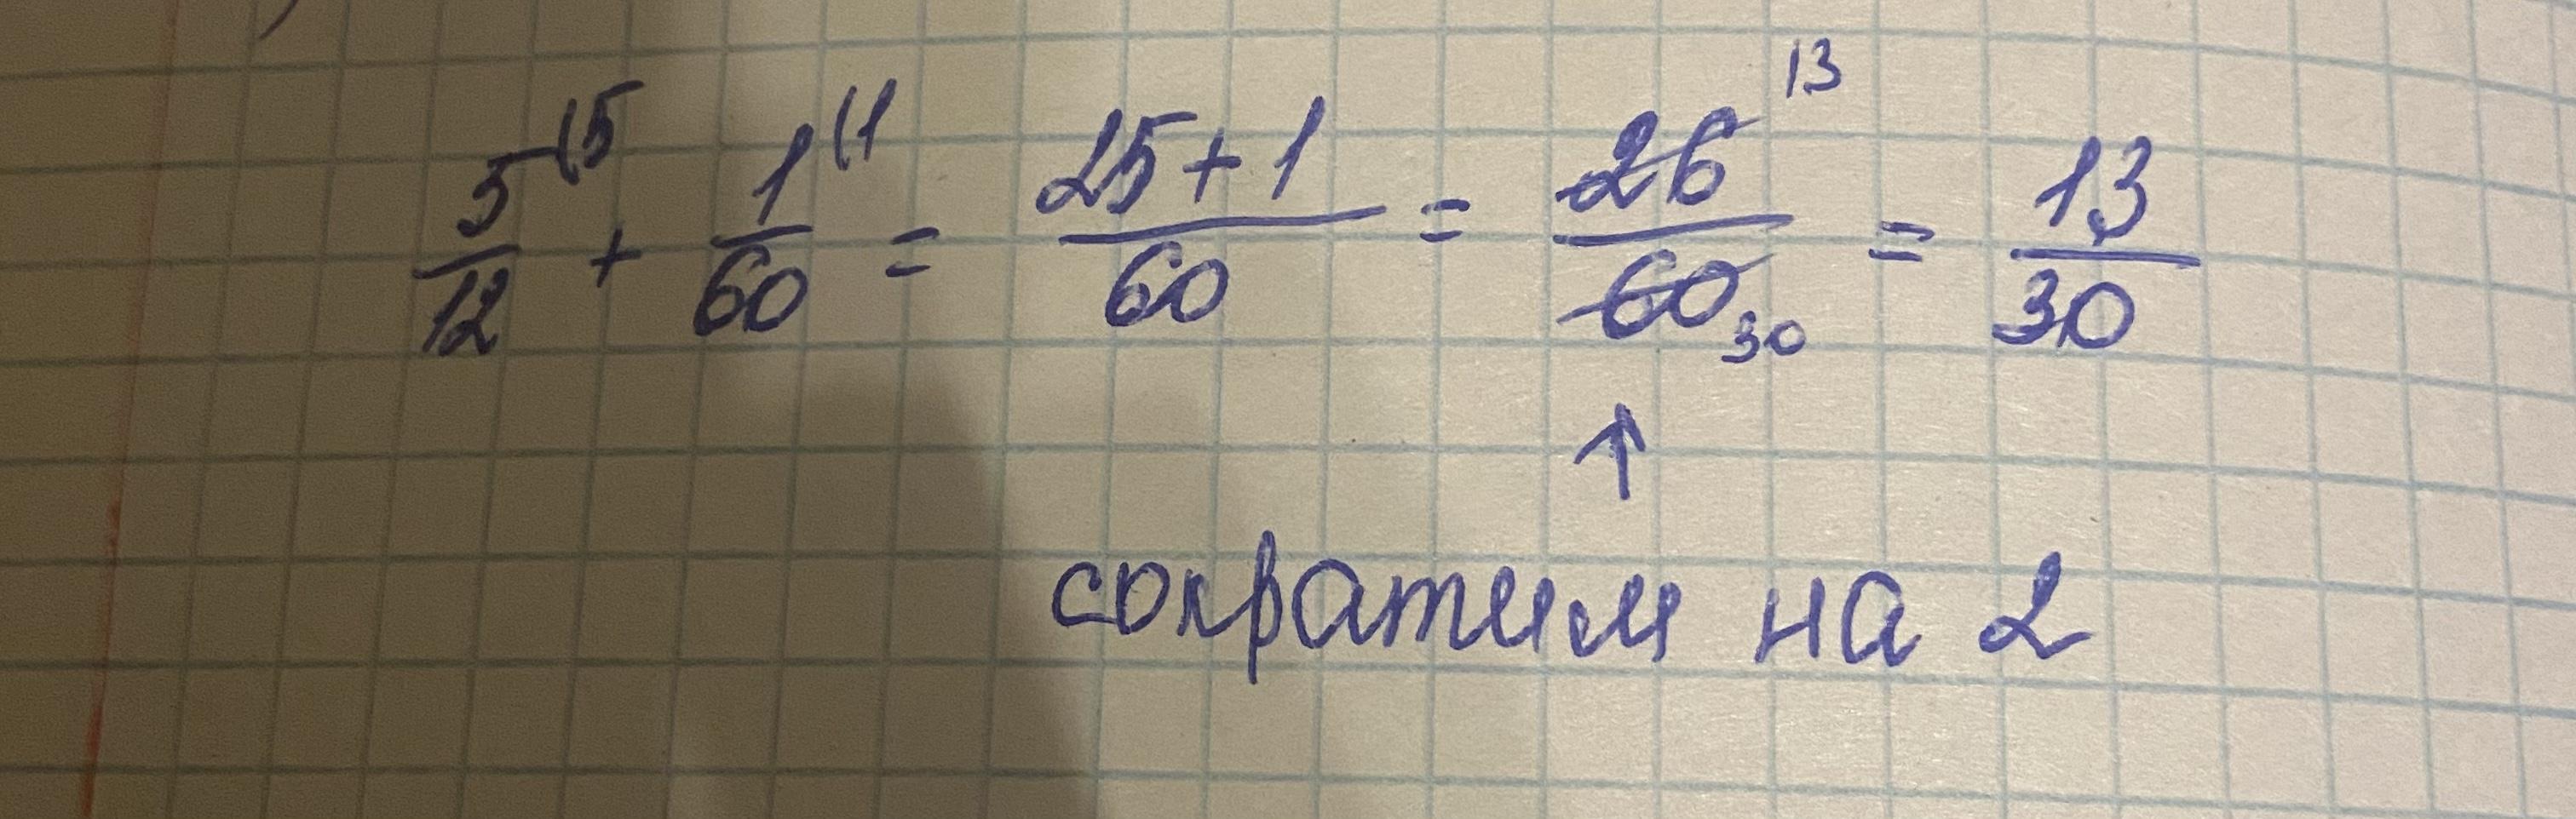 5/12 (5 + 1/60 (1 = 25+1/60 = 26/60 13 30 = 13/30
↑
сократим на 2